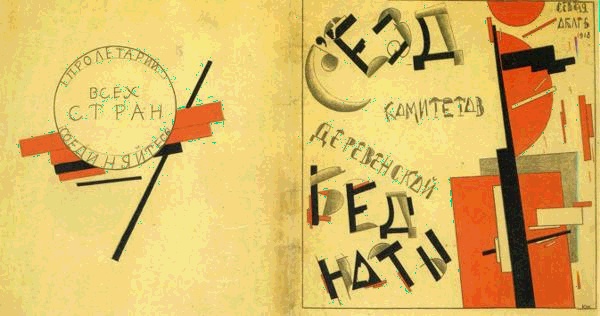 ПРОЛЕТАРИИ
ВСЕХ
СТРАН
СОЕДИНЯЙТЕСЬ
С'ЕЗД
КОМИТЕТОВ
ДЕРЕВЕНСКОЙ
БЕД
НОТЫ
1918